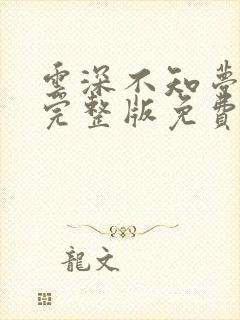 雲深不知夢
完整版免費
龍文